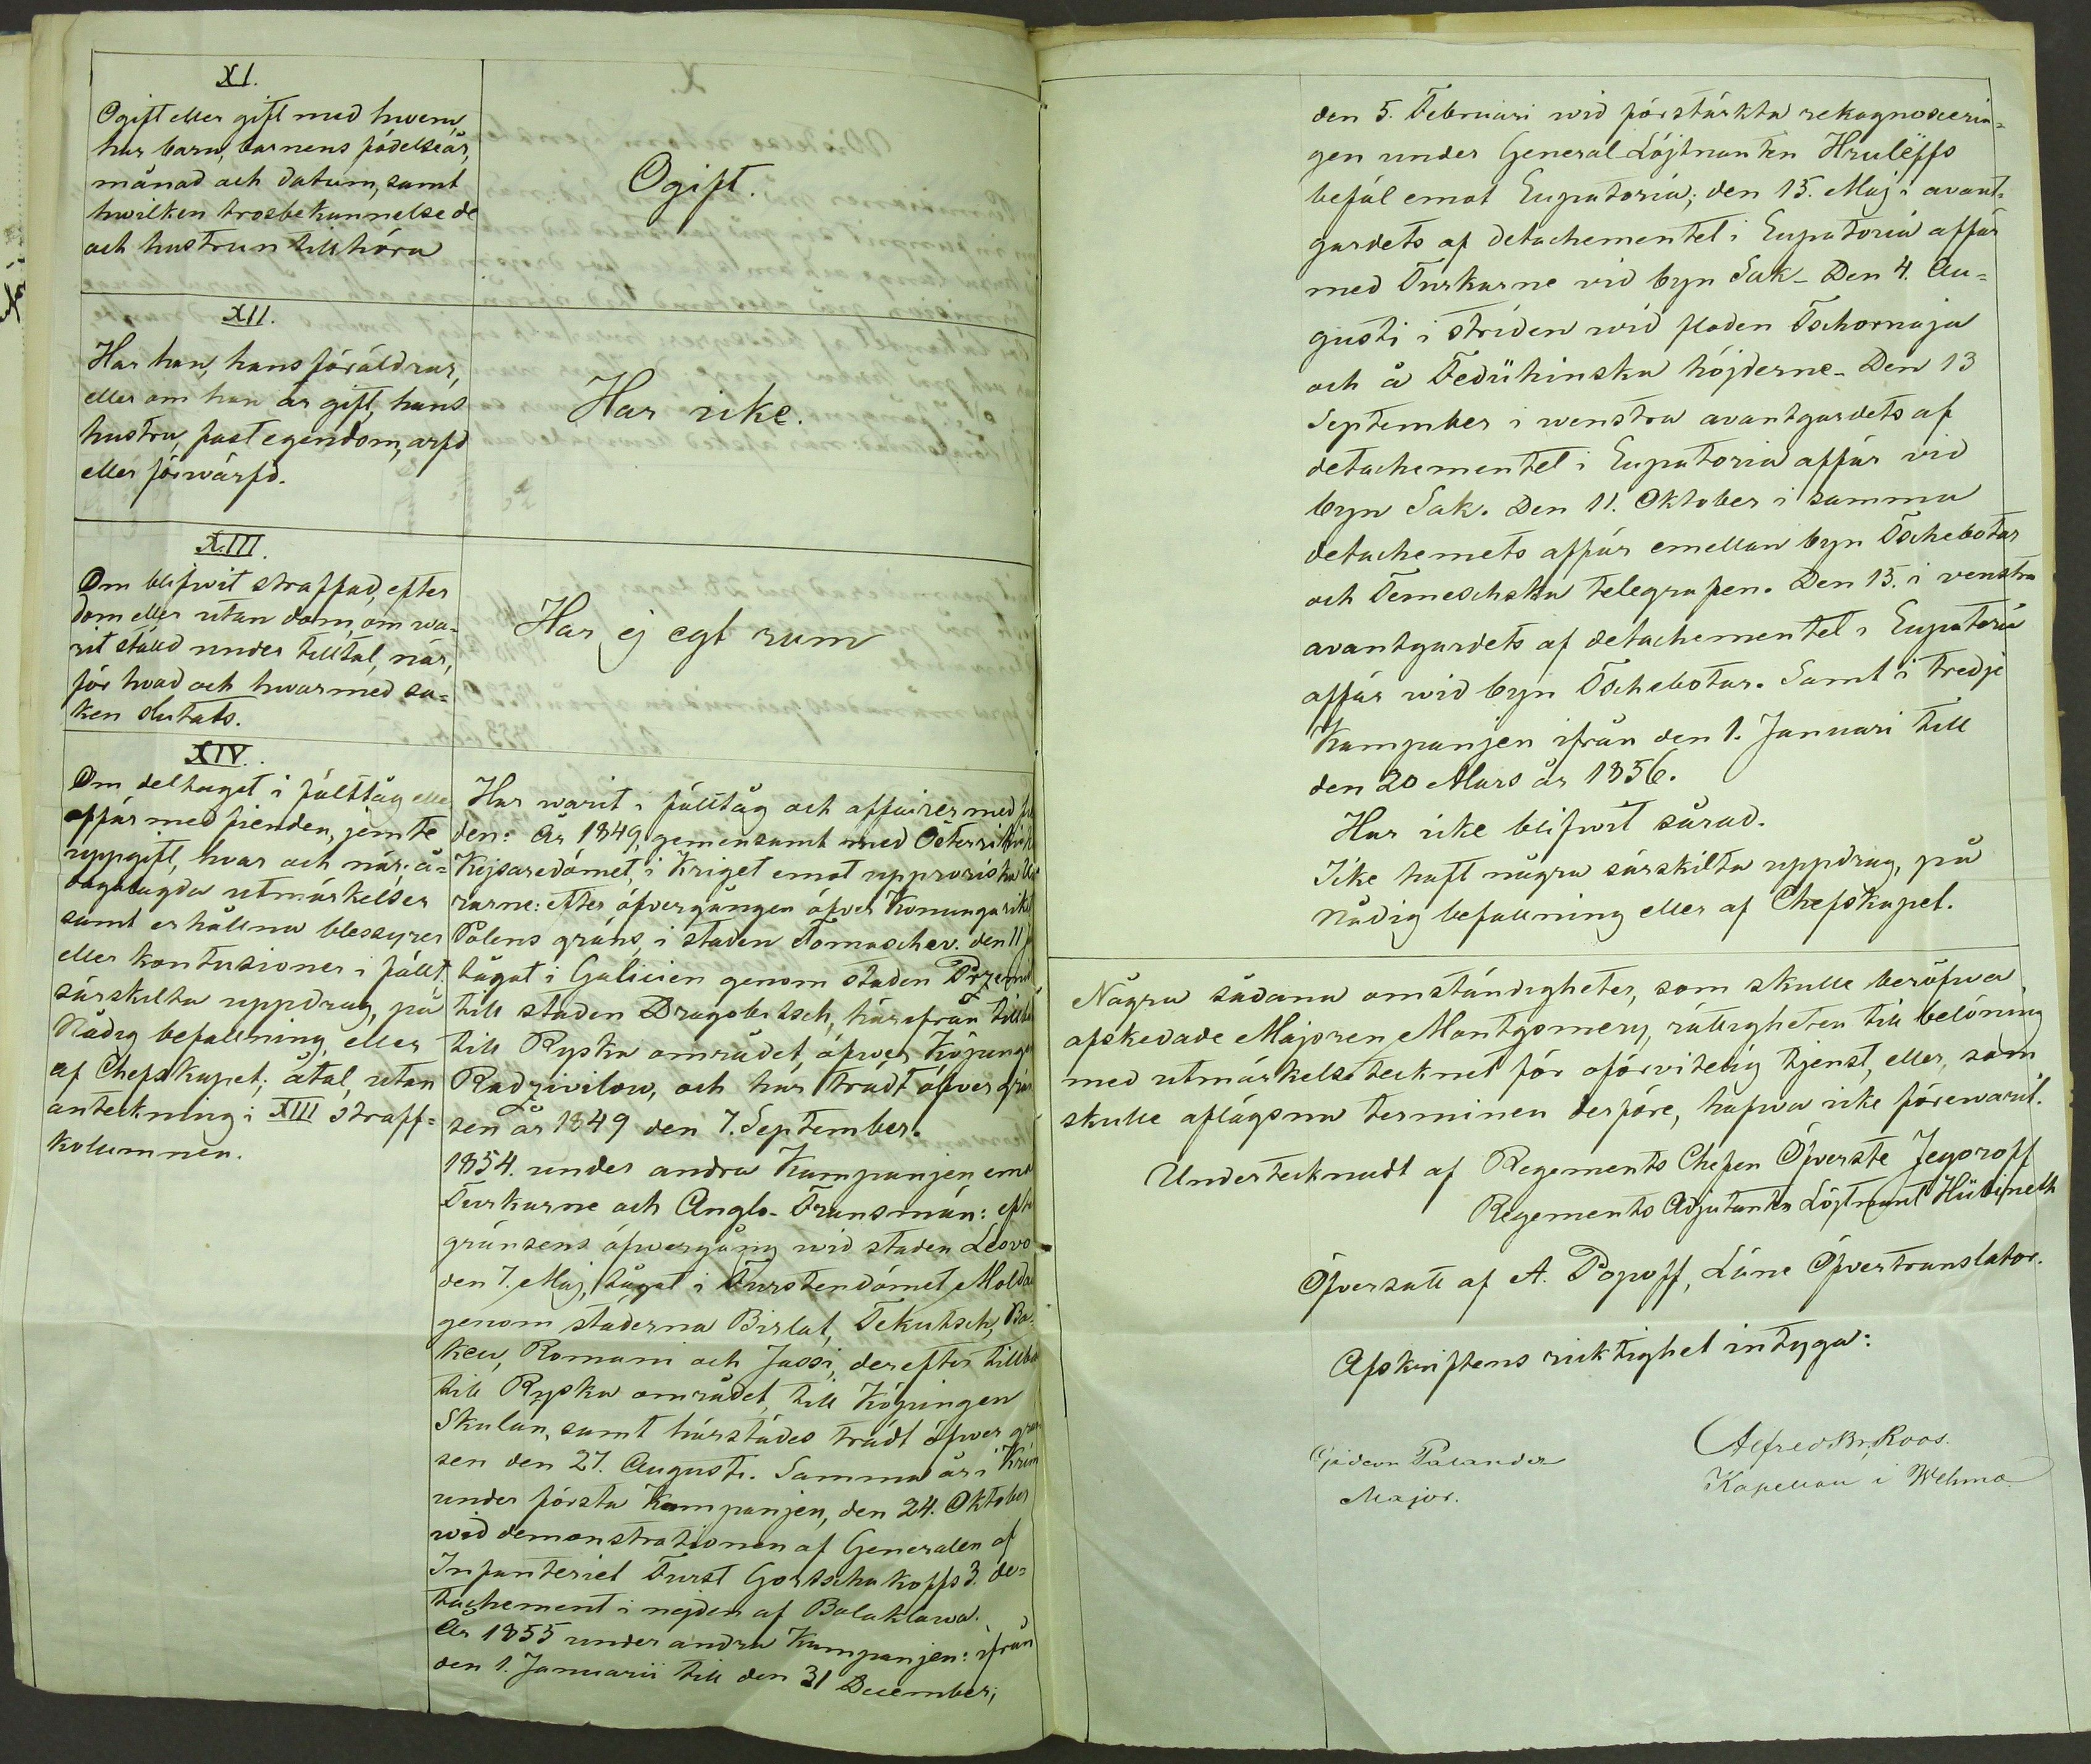 XI.
Ogift eller gift med hwem,
har barn, barnens födelseår,
månad och datum, samt
hwilken trosbekännelse de
och hustrun tillhöra
Ogift.
XII.
Har han, hans föräldrar,
eller om han är gift, hans
hustru, fast egendom, ärfd
eller förwärfd.
Har icke.
XIII.
Om blifwit straffad, efter
dom eller utan dom, om wa-
rit ställd under tilltal, när,
för hvad och hwarmed sa-
ken slutats.
Har ej egt rum
XIV.
Om deltagit i fälttåg eller
affär med fienden, jemte
uppgift, hvar och när: å-
dagalagda utmärkelser
samt erhållna blessyrer
eller kontusioner i fält:
särskilta uppdrag, på
Nådig befallning eller
af Chefskapet; åtal, utan
anteckning i XIII straff-
kolumnen.
Har warit i fälttåg och affairer med
den: År 1849, gemensamt med Österrikiska
Kejsaredömet, i Kriget emot upproriska
rarne: efter öfvergången öfver Konungarik
Polens gräns, i staden Tomaschev. den 11
tågat i Galicien genom staden
till staden Dragobitsch, härifrån
till Ryska området, öfwer Köpinge
Radzivilow, och här trädt öfver grän
sen år 1849 den 7. September.
1854. under andra Kampanjen emo
Turkarne och Anglo-Fransmän: eft
gränsens öfwergång wid staden Leovo
den 7. Maj, tågat i Furstendömet Molda
genom städerna Birlat, Tekutsch, Ba-
keu, Romani och Jassi, derefter tillba
till Ryska området, till Köpingen
Skulän, samt härstädes trädt öfwer grän
sen den 27. Augusti. Samma år i Krim
under första Kampanjen, den 24. Oktober
wid demonstrationen af Generalen af
Infanteriet Furst Gortschakoffs 3. de-
tachement i nejden af Balaklawa.
År 1855 under andra Kampanjen: ifrån
den 1. Januarii till den 31 December;
den 5. Februari wid förstärkta rekognoscerin-
gen under General-Löjtnanten Hruleffs
befäl emot Eupatoria; den 15. Maj i avant-
gardets af detachementet i Eupatoria affär
med Turkarne vid byn Sak- Den 4. Au-
gusti i striden wid floden Tschornaja
och å Fedühinska höjderne- Den 13
September i wenstra avantgardets af
detachementet i Eupatoria affär vid
byn Sak. Den 11. Oktober i samma
detachemets affär emellan byn Tschebotar
och Temeschska telegrafen. Den 15. i venstra
avantgardets af detachementet i Eupatoria
affär wid byn Tschebotar. Samt i tredje
Kampanjen ifrån den 1. Januari till
den 20 Mars år 1856.
Har icke blifwit sårad.
Icke haft några särskilta uppdrag, på
Nådig befallning eller af Chefskapet.
Några sådana omständigheter, som skulle beröfwa
afskedade Majoren Montgomery, rättigheten till belöning
med utmärkelsetecknet för oförvitelig tjenst, eller, som
skulle aflägsna terminen derföre, hafwa icke förewarit.
Undertecknadt af Regements Chefen Öfverste Jegoroff
Regements Adjutanten Löjtnant
Öfversatt af A. Popoff, Läne Öfvertranslator.
Afskriftens ricktighet intyga:
Gideon Palander
Major.
Alfred Br, Roos.
Kapellan i Wehmo